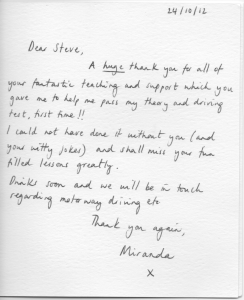 24/10/12
Dear Steve,
A huge thank you for all of
your fantastic teaching and support which you
gave me to help me pass my theory and driving
test, first time!!
I could not have done it without you (and
your witty jokes) and shall miss your fun
filled lessons greatly.
Drinks soon and we will be in touch
regarding motorway driving etc
Thank you again,
Miranda
x